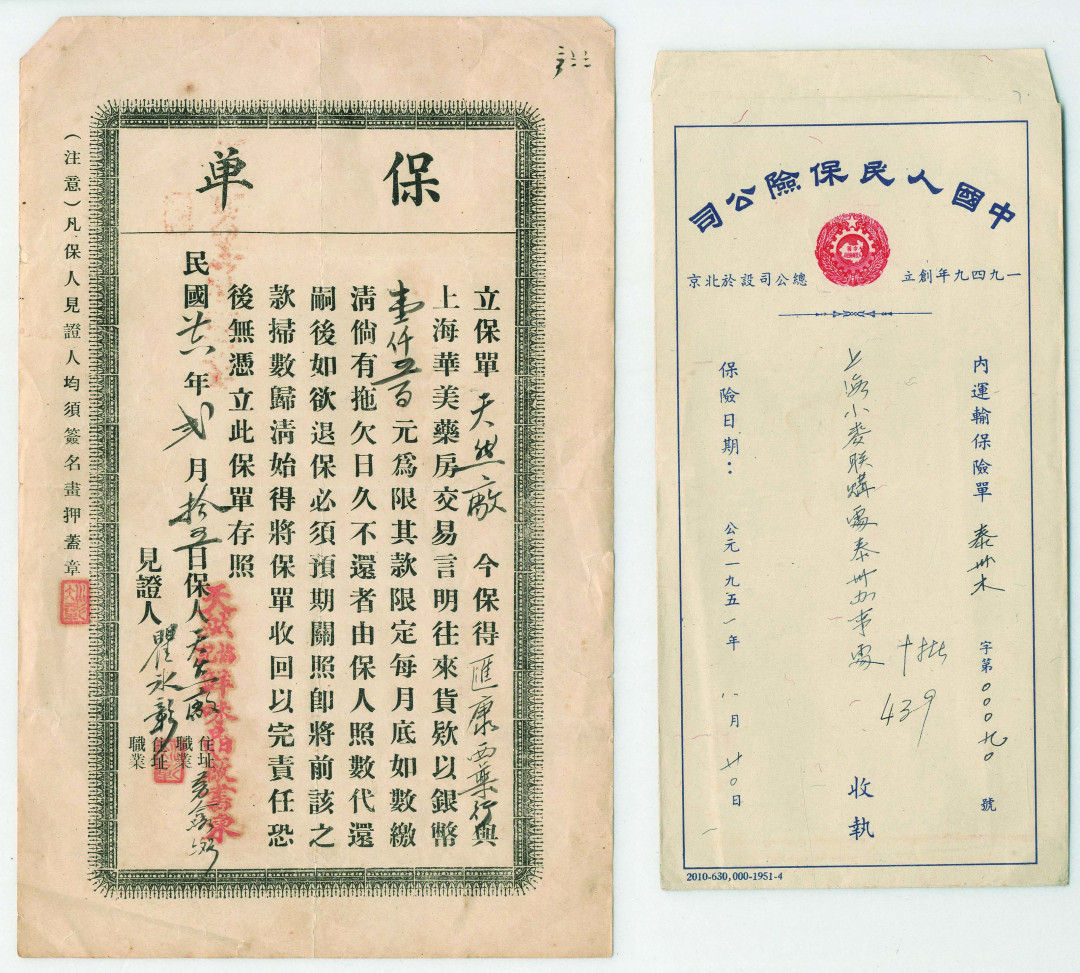 保单
立保單天然廠今保得匯康西藥行與
上海華美藥房交易言明往來貨欵以銀幣
壹仟五百元爲限其款限定每月底如數繳
淸倘有拖欠日久不還者由保人照數代還
嗣後如欲退保必須預期關照卽將前該之
款掃數歸淸始得將保單收回以完責任恐
後無憑立此保單存照
民國 年弐月拾五日保人天然廠
住址
職業
見證人瞿永彰
住址
職業
天然協記鮮味晶廠書柬
（注意）凡保人見證人均須簽名畫押蓋章
中國人民保險公司
一九四九年創立 總公司設於北京
內運輸保險單 泰卅 字第000九0號
十批
439
上海小麥联購處泰卅办事處 收執
保險日期：公元一九五一年八月廿0日
2010-630,000-1951-4